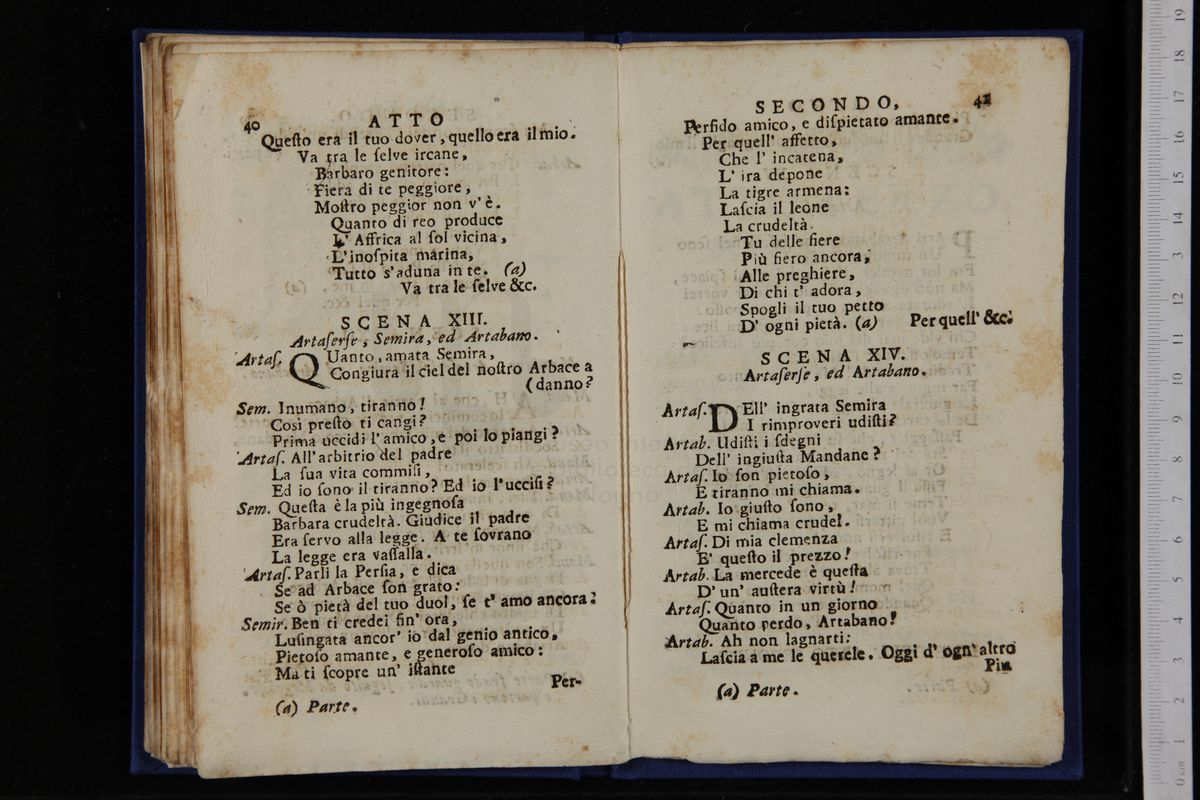 40
ATTO
Queſto era il tuo dover, quello era il mio.
Va tra le ſelve ircane,
Barbaro genitore:
Fiera di te peggiore,
Moſtro peggior non v'è.
Quanto di reo produce
L' Affrica al ſol vicina,
L'inoſpita marina,
Tutto s'aduna in te. (a)
Va tra le ſelve &c.
SCENA XIII.
Artaſerſe, Semira, ed Artabano.
Artaſ. QUanto, amata Semira,
Congiura il ciel del noſtro Arbace a
(danno?
Sem. Inumano, tiranno!
Così preſto ti cangi?
Prima uccidi l'amico, e poi lo piangi?
Artaſ. All'arbitrio del padre
La ſua vita commiſi,
Ed io ſono il tiranno? Ed io l'ucciſi?
Sem. Queſta è la più ingegnoſa
Barbara crudeltà. Giudice il padre
Era ſervo alla legge. A te ſovrano
La legge era vaſſalla.
Artaſ. Parli la Perſia, e dica
Se ad Arbace ſon grato:
Se ò pietà del tuo duol, ſe t'amo ancora?
Semir. Ben ti credei fin' ora,
Luſingata ancor' io dal genio antico,
Pietoſo amante, e generoſo amico:
Ma ti ſcopre un' iſtante
Per-
(a) Parte.
SECONDO,
41
Perfido amico, e diſpietato amante.
Per quell' affetto,
Che l' incatena,
L' ira depone
La tigre armena:
Laſcia il leone
La crudeltà.
Tu delle fiere
Più fiero ancora,
Alle preghiere,
Di chi t' adora,
Spogli il tuo petto
D' ogni pietà. (a) Per quell' &c.
SCENA XIV.
Artaſerſe, ed Artabano.
Artaſ. DEll' ingrata Semira
I rimproveri udiſti?
Artab. Udiſti i ſdegni
Dell' ingiuſta Mandane?
Artaſ. Io ſon pietoſo,
E tiranno mi chiama.
Artab. Io giuſto ſono,
E mi chiama crudel.
Artaſ. Di mia clemenza
E' queſto il prezzo!
Artab. La mercede è queſta
D' un' auſtera virtù!
Artaſ. Quanto in un giorno
Quanto perdo, Artabano!
Artab. Ah non lagnarti:
Laſcia a me le querele. Oggi d' ogn' altro
Più
(a) Parte.